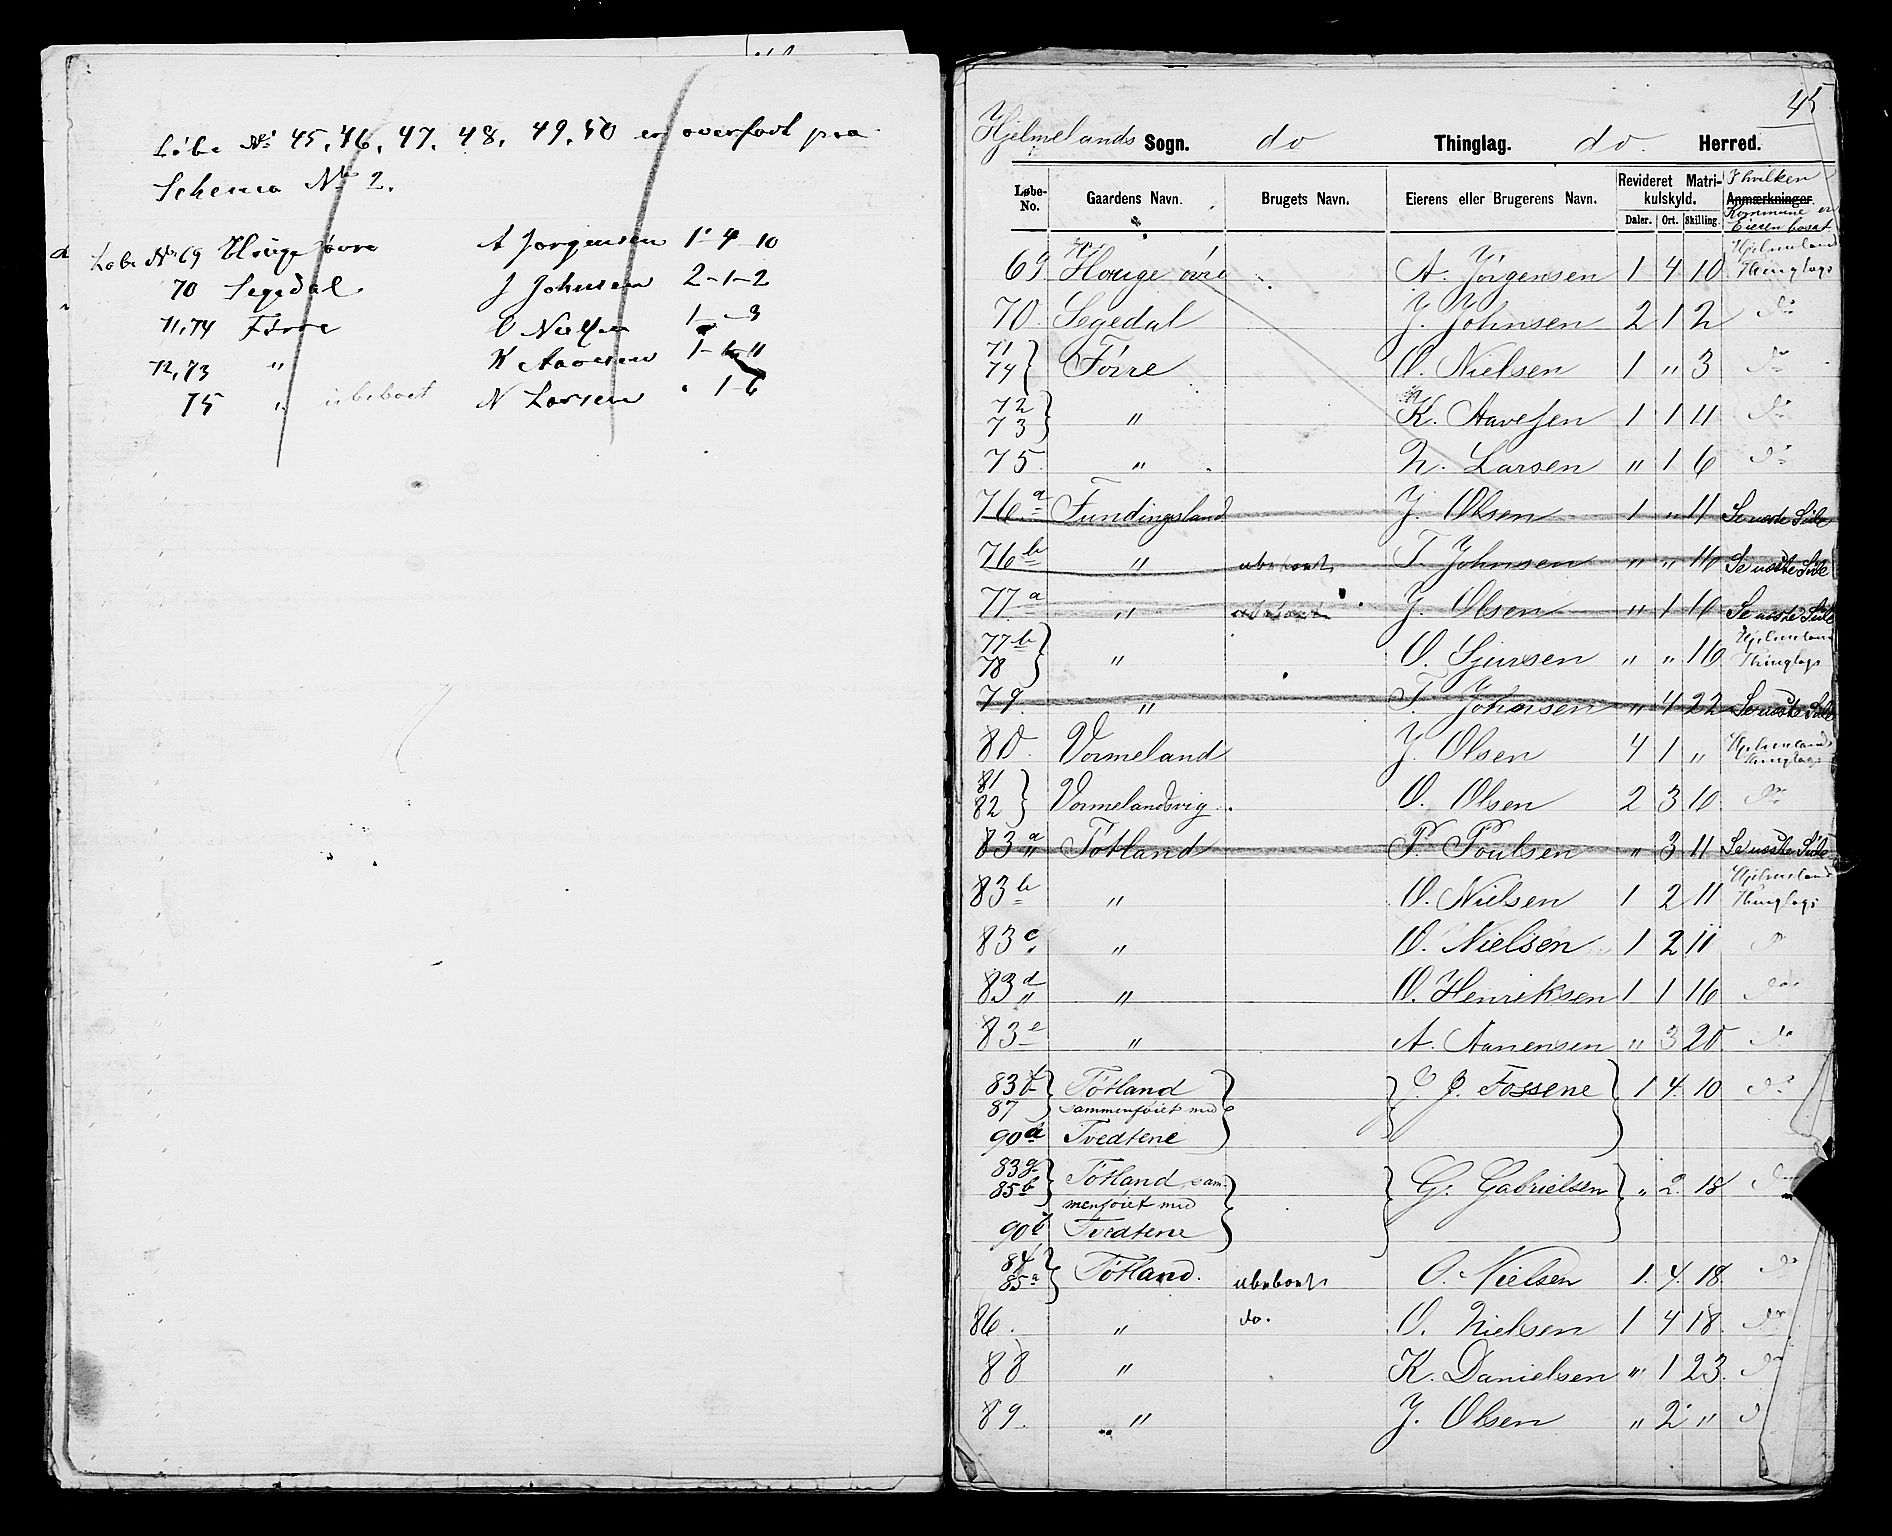 Løbe No 45, 46, 47, 48, 49, 50 er overført paa
Schema No 2.
Løbe No 69 Houge øvre A Jørgensen 1 - 4 - 10
70 Segedal J Johnsen 2 - 1 - 2
71, 74 Førre O Nielsen 1 - „ - 3
72, 73 „ K Aavesen 1 - 1 - 11
75 „ ubeboet N Larsen „ 1 - 6
45
Hjelmelands Sogn. do Thinglag. do. Herred.
Løbe-No. Gaardens Navn. Brugets Navn. Eierens eller Brugerens Navn. Revideret Matrikulskyld. Daler. Ort. Skilling. Anmærkninger.
I hvilken Kommune er Eieren bosat
69 Houge øvre A. Jørgensen 1 4 10 Hjelmeland Thinglags
70 Segedal J. Johnsen 2 1 2 do
71 74 } Førre O. Nielsen 1 „ 3 do
72 73 } „ K. Aavesen 1 1 11 do
75 „ N. Larsen „ 1 6 do
76 a Fundingsland J. Olsen 1 „ 11 Se næste Side
76 b „ ubeboet T. Johnsen „ „ 16 Se næste Side
77 a „ ubeboet J. Olsen „ 1 16 Se næste Side
77 b 78 } „ O. Sjursen „ „ 16 Hjelmeland Thinglags
79 „ T. Johnsen „ 4 22 Se næste Side
80 Vormeland J. Olsen 4 1 „ Hjelmelands Thinglags
81 82 } Vormelandsvig O. Olsen 2 3 10 do
83 a Tøtland P. Poulsen „ 3 11 Se næste Side
83 b „ O. Nielsen 1 2 11 Hjelmeland Thinglags
83 c „ O. Nielsen 1 2 11
83 d „ O. Henriksen 1 1 16 do
83 e „ A. Aanensen „ 3 20 do
83 f 87 90 a } Tøtland sammenføiet med Tvedtene J. Fossene 1 4 10 do
83 g 85 b 90 b } Tøtland sammenføiet med Tvedtene G. Gabrielsen „ 2 18
84 85 a } Tøtland. ubeboet O. Nielsen 1. 4. 18 do
86. „ do. O. Nielsen 1 4 18 do
88 „ K. Danielsen „ 1 23. do
89. „ J. Olsen „ 2 „